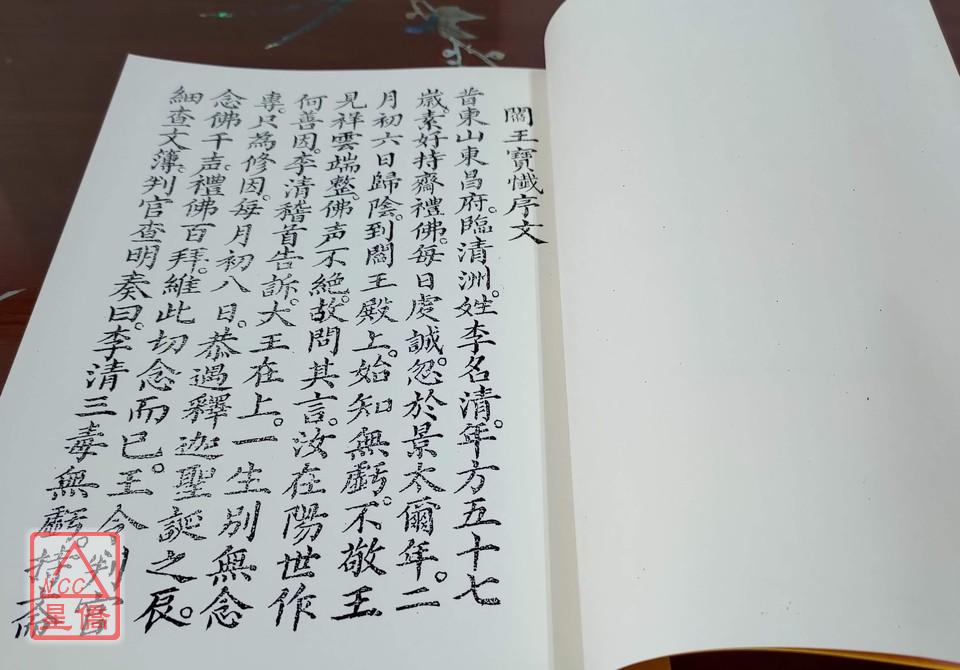 閻王寶懺序文
昔東山東昌府。臨清洲。姓李名清。年方五十七
歲。素好持齋禮佛。每日虔誠。忽於景太爾年。二
月初六日歸陰。到閻王殿上。始知無虧。不敬王
見祥雲端整。佛声不絕。故問其言。汝在陽世作
何善因。李清稽首告訴。大王在上。一生別無念
專。只為修因。每月初八日。恭遇釋迦聖誕之辰。
念佛千声。禮佛百拜。維此切念而已。王令判官
細查文薄。判官查明奏曰。李清三毒無虧。持齋
NCC
星僑